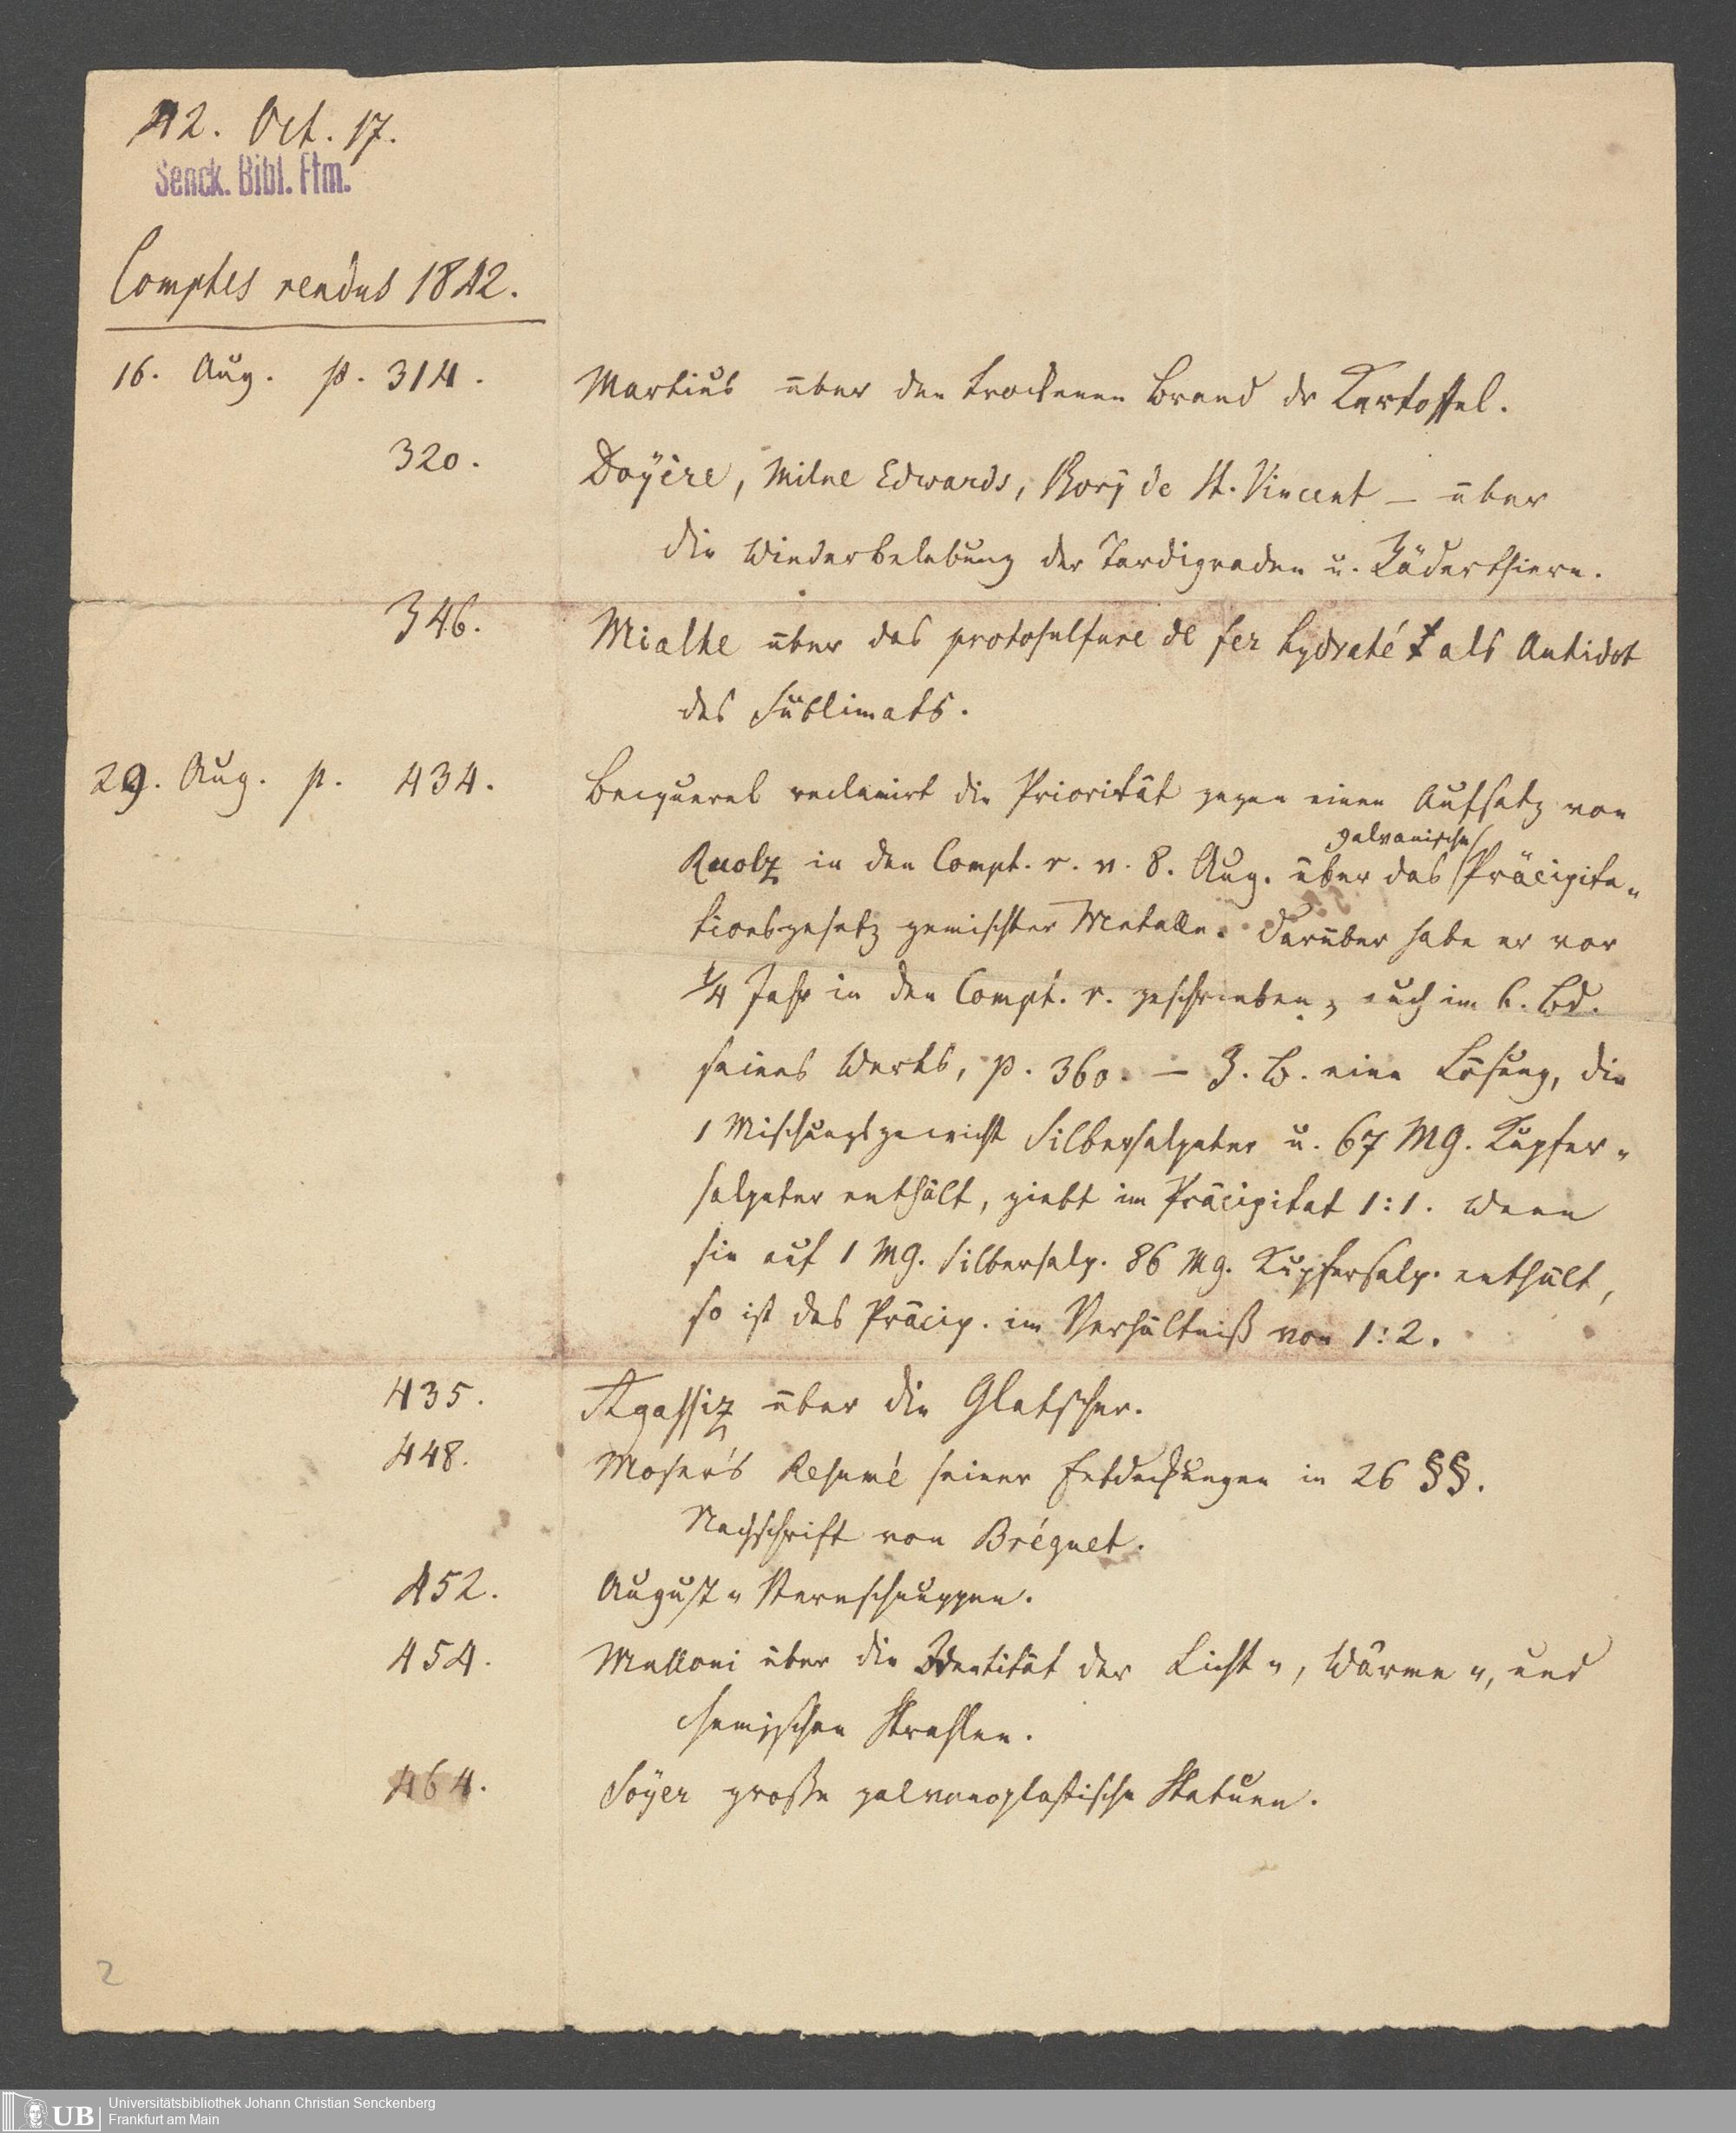 42. Oct. 17.
Senck. Bibl. Ffm.
Comptes rendus 1842.
16. Aug. p. 314. Martius über den trockenen Brand dr Kartoffel.
320. Doyère, Milne Edwards, Bory de St. Vincent – über
die Wiederbelebung der Tardigraden u. Räderthiere.
346. Mialhe über das protosulfure de fer hydraté als Antidot
des Sublimats.
29. Aug. p. 434. Becquerel reclamirt die Priorität gegen einen Aufsatz von
galvanische
Ruolz in den Compt. r. v. 8. Aug. über das Präcipita-
tionsgesetz gemischter Metalle. Darüber habe er vor
1/4 Jahr in den Compt. r. geschrieben, auch im 6. Bd.
seines Werks, p. 360. – Z. B. eine Lösung, die
1 Mischungsgewicht Silbersalpeter u. 67 MG. Kupfer-
salpeter enthält, giebt im Präcipitat 1:1. Wenn
sie auf 1 MG. Silbersalp. 86 MG. Kupfersalp. enthält,
so ist das Präcip. im Verhältniß von 1:2.
435. Agassiz über die Gletscher.
448. Moser's Resumé seiner Entdeckungen in 26 §§.
Nachschrift von Bréguet.
452. August-Sternschnuppen.
454. Melloni über die Identität der Licht-, Wärme-, und
chemischen Strahlen.
464. Soyer große galvanoplastische Statuen.
2
UB
Universitätsbibliothek Johann Christian Senckenberg
Frankfurt am Main